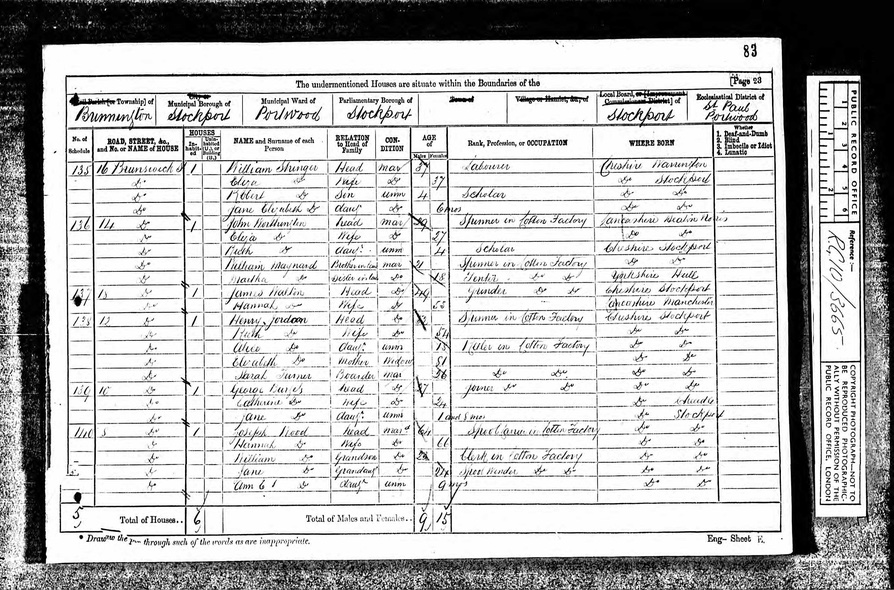 83
[Page 23
The undermentioned Houses are situate within the Boundaries of the
Civil Parish [or Township] of
City or
Municipal Borough of
Municipal Ward of
Parliamentary Borough of
Town of
Village or Hamlet, &c., of
Local Board, or [Improvement
Commissioners District] of
Ecclesiastical District of
Brinnington Stockport Portwood Stockport Stockport St Paul
Portwood
No. of Schedule
ROAD, STREET, &c., and No. or NAME of HOUSE
HOUSES
In-habited
Unin-habited (U.), or (B.)
NAME and Surname of each Person
RELATION to Head of Family
CON-DITION
AGE of
Males Females
Rank, Profession, or OCCUPATION
WHERE BORN
Whether
1. Deaf-and-Dumb
2. Blind
3. Imbecile or Idiot
4. Lunatic
135 16 Brunswick St 1 William Stringer Head mar 37 Labourer Cheshire Warrington
Do Eliza Do Wife Do 37 Do Stockport
Do Robert Do Son unm 4 Scholar Do Do
Do Jane Elizabeth Do daur 6 mos Do Do
136 14 Do 1 John Worthington head mar 29 Spinner in Cotton Factory Lancashire Heaton Norris
Do Eliza Do Wife Do 27 Do Do
Do Ruth Do daur unm 4 Scholar Cheshire Stockport
Do William Maynard Brother in law mar 21 Spinner in Cotton Factory Do Do
Do Martha Do Sister in law Do 18 Tenter Do Do Yorkshire Hull
137 Do 1 James Head Do 49 Grinder Do Do Cheshire Stockport
Do Hannah Do Wife Do 52 Lancashire Manchester
138 12 Do 1 Henry Jordan Head Do Spinner in Cotton Factory Cheshire Stockport
Do Ruth Do Wife Do 54 Do Do
Do Alice Do daur unm 18 in Cotton Factory Do Do
Do Elizabeth Do Mother Widow 81 Do Do
Do Sarah Turner Boarder mar 36 Do Do Do Do
139 10 Do 1 George Davies head Do 27 Joiner Do Do Do Do
Do Catherine Do Wife Do 24 Do Cheadle
Do Jane Do daur unm 1 and 8 mos Do Stockport
140 8 Do 1 Joseph Wood head mar 64 in Cotton Factory Do Do
Do Hannah Do Wife Do 60 Do Do
Do William Do Grandson Do Clerk in Cotton Factory Do Do
Do Jane Do Grandaur Do Winder Do Do Do Do
Do Ann E Do daur unm 9 mos Do Do
5 Total of Houses.. 6 Total of Males and Females.. 9 15
* Draw the pen through such of the words as are inappropriate.
Eng— Sheet E.
PUBLIC RECORD OFFICE
Reference :—
RG 10/3665
COPYRIGHT PHOTOGRAPH—NOT TO
BE REPRODUCED PHOTOGRAPHIC-
ALLY WITHOUT PERMISSION OF THE
PUBLIC RECORD OFFICE, LONDON